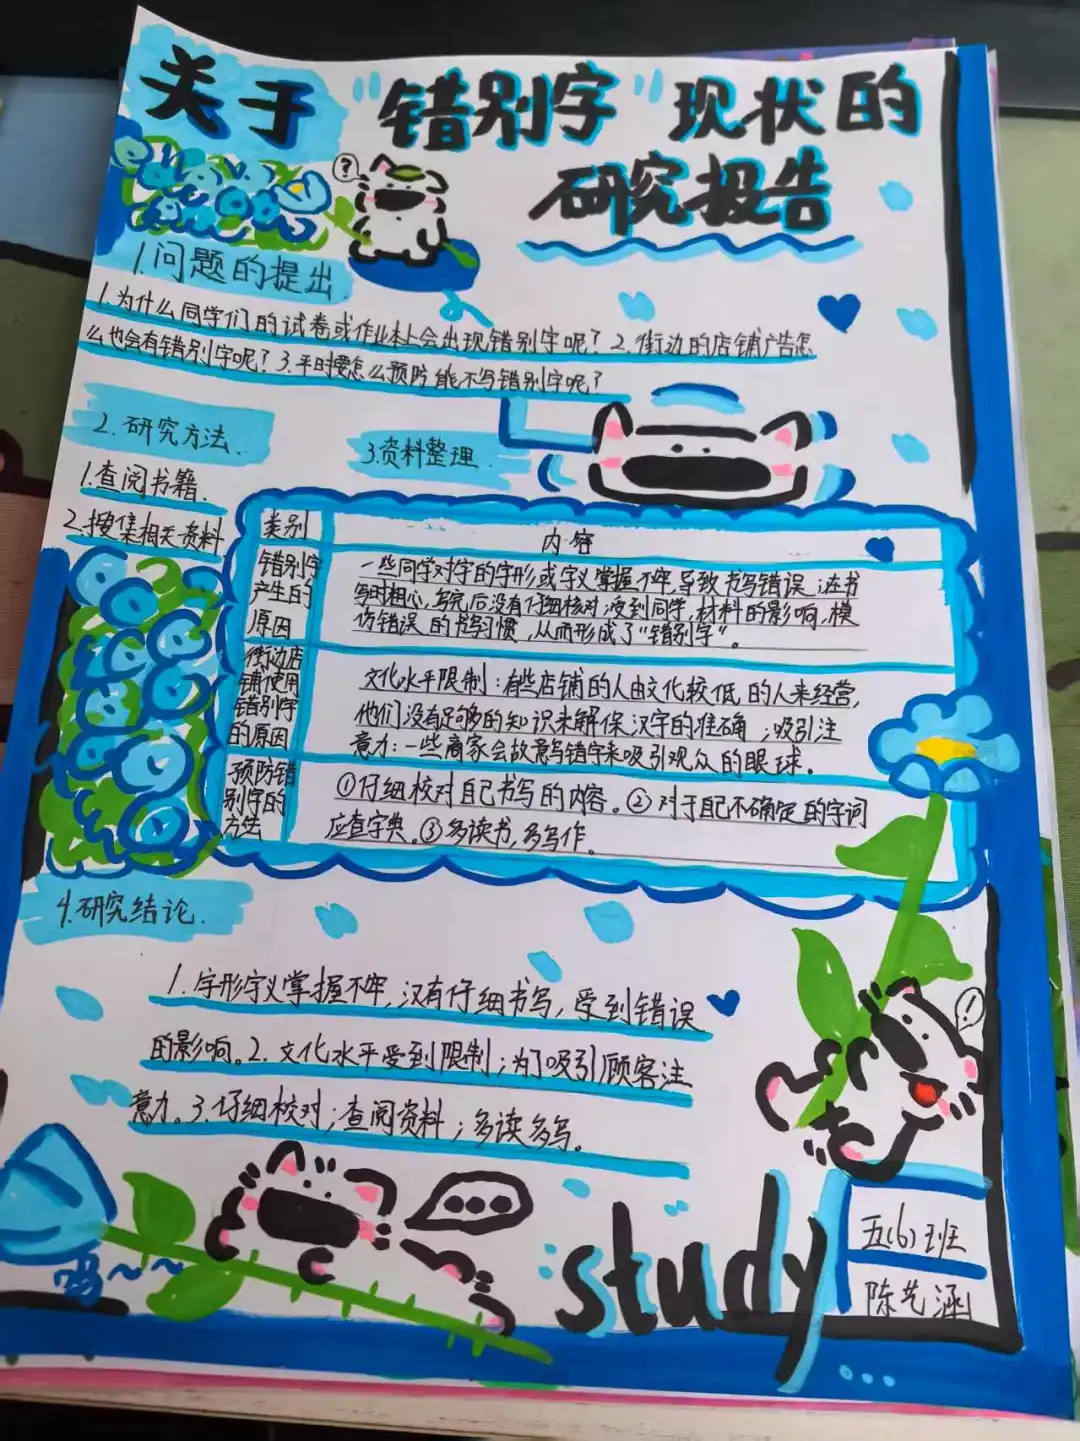 关于“错别字”现状的
研究报告
?
1.问题的提出
1.为什么同学们的试卷或作业本上会出现错别字呢?2.街边的店铺广告怎
么也会有错别字呢?3.平时要怎么预防能不写错别字呢?
2.研究方法
1.查阅书籍.
2.搜集相关资料
3.资料整理
类别
内容
错别字
产生的
原因
一些同学对字的字形或字义掌握不牢,导致书写错误;在书
写时粗心,写完后没有仔细核对;受到同学,材料的影响,模
仿错误的书写习惯,从而形成了“错别字”。
街边店
铺使用
错别字
的原因
文化水平限制:有些店铺的人由文化较低的人来经营,
他们没有足够的知识来解保汉字的准确;吸引注
意力:一些商家会故意写错字来吸引观众的眼球。
预防错
别字的
方法
①仔细校对自己书写的内容。②对于自己不确定的字词
应查字典。③多读书,多写作。
4.研究结论.
1.字形字义掌握不牢,没有仔细书写,受到错误
的影响。2.文化水平受到限制;为了吸引顾客注
意力。3.仔细校对;查阅资料;多读多写。
!
study
五(6)班
陈艺涵